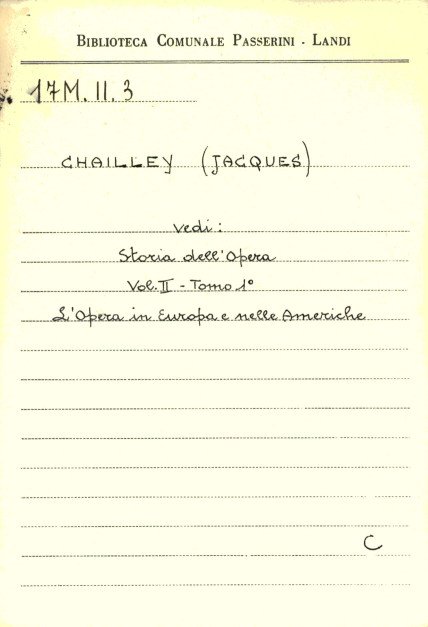 BIBLIOTECA COMUNALE PASSERINI - LANDI
17M.II.3
CHAILLEY (JACQUES)
vedi:
Storia dell'Opera
Vol. II - Tomo 1°
L'Opera in Europa e nelle Americhe
C